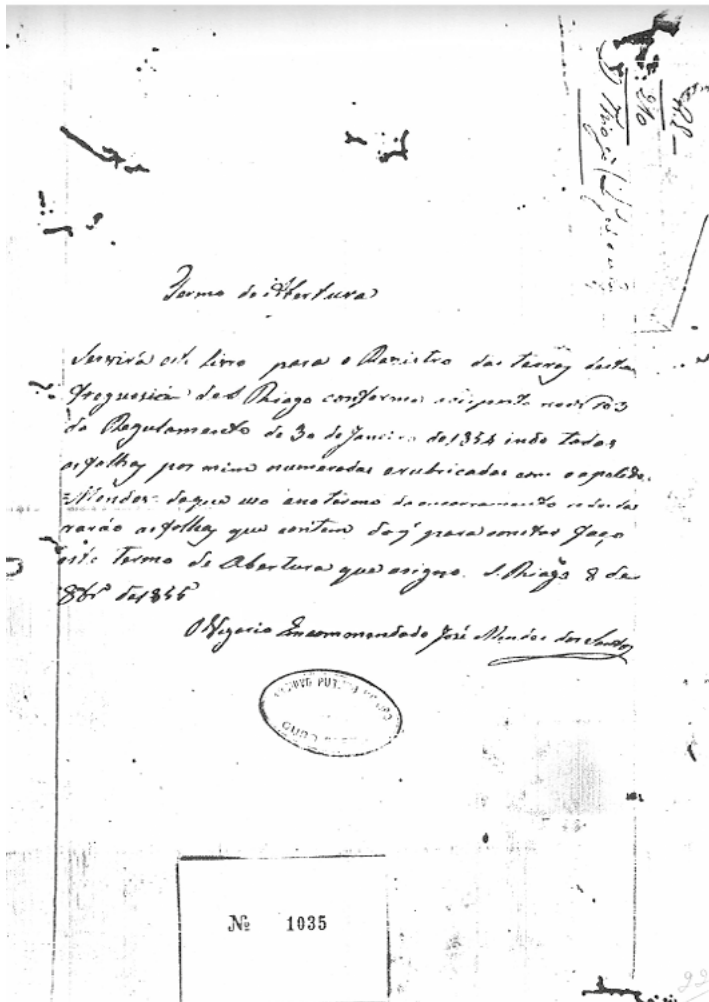 Termo de Abertura
Servirá este livro para o Rezistro das terras desta
Freguesia de S Thiago conforme
do Regulamento de 30 de Janeiro de 1854 indo todas
as folhas por mim numeradas e rubricadas com o apelido
=Mendes= de que uso e no termo de encerramento se decla
rarão as folhas que contem do q' para constar faço
este Termo de Abertura que asigno. S. Thiago 8 de
8br.º de 1855
O Vigario Encommendado José Mendes dos Santos
Nº 1035